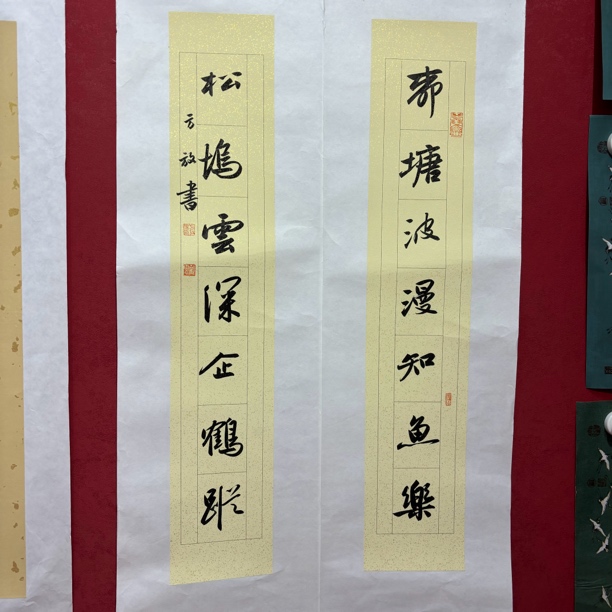 茆塘波漫知魚樂
松塢雲深企鶴蹤
方放書